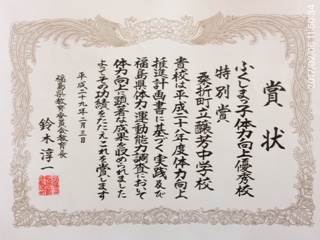 賞状
ふくしまっ子体力向上優秀校
特別賞
桑折町立醸芳中学校
貴校は平成二十八年度体力向上
推進計画書に基づく実践及び
福島県体力運動能力調査において
体力向上に顕著な成果を収められました
よってその功績をたたえこれを賞します
平成二十九年二月三日
福島県教育委員会教育長
鈴木淳一